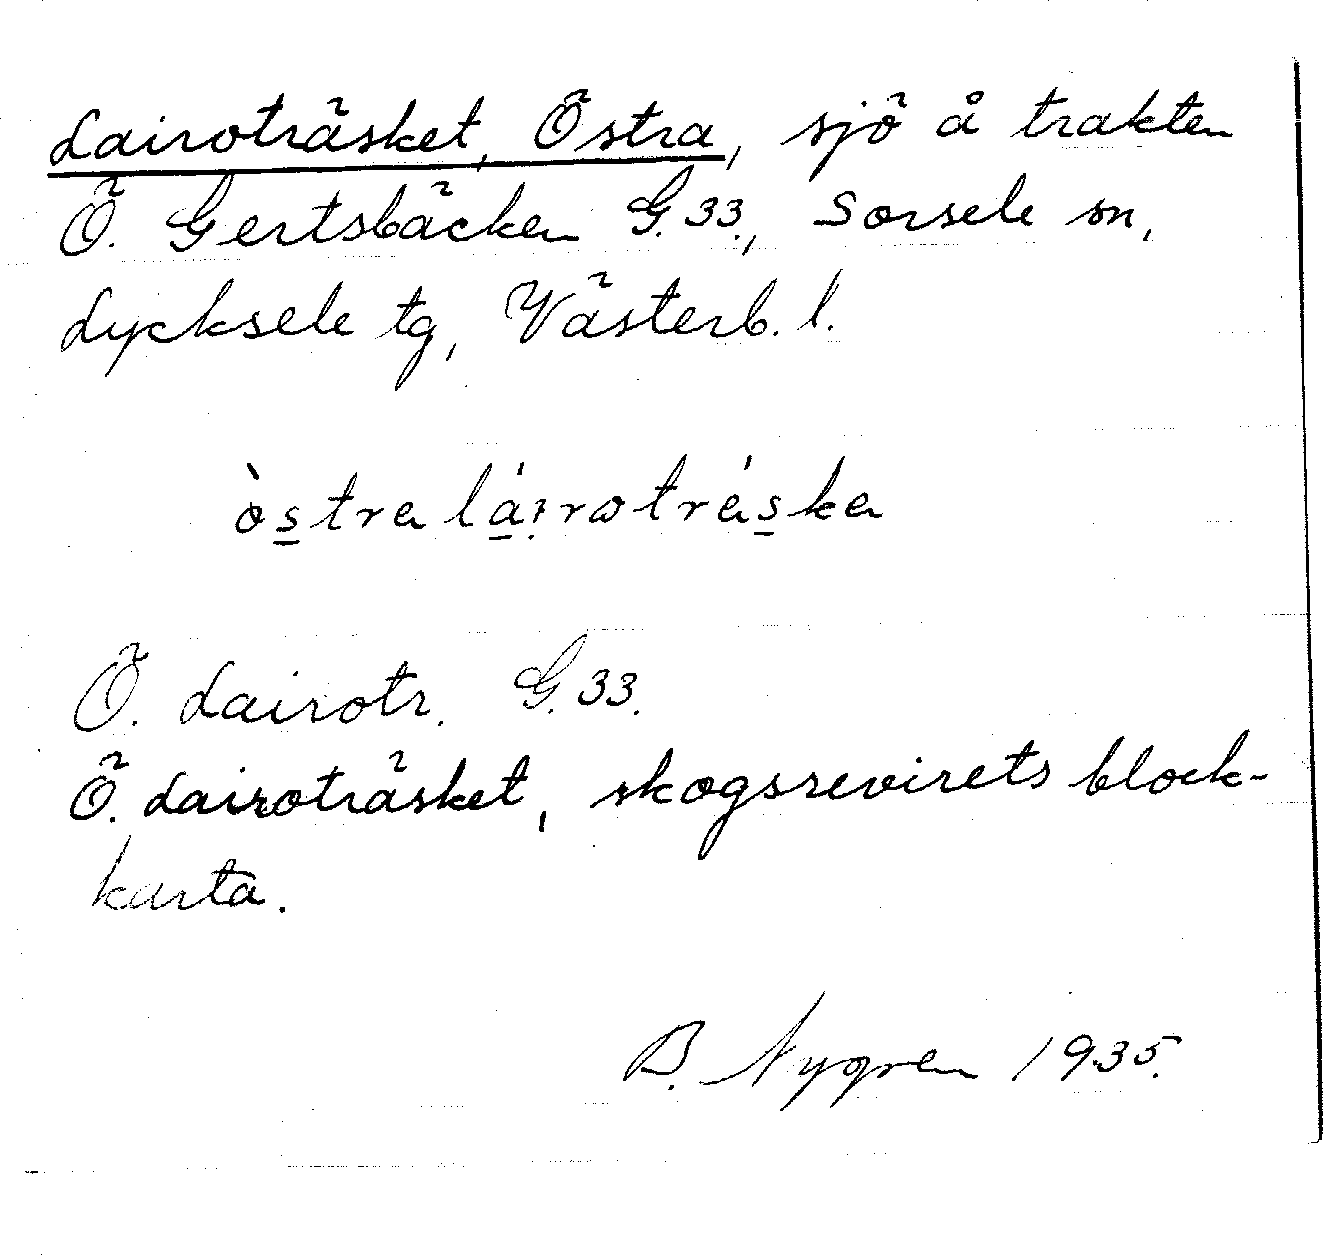 Lairoträsket, Östra, sjö å trakten
Ö. Gertsbäcken G.33., Sorsele sn,
Lycksele tg, Västerb. l.
òstra láiroträ́ska
Ö. Lairotr. G.33.
Ö. Lairoträsket, skogsrevirets block-
karta.
B. Nygren 1935.